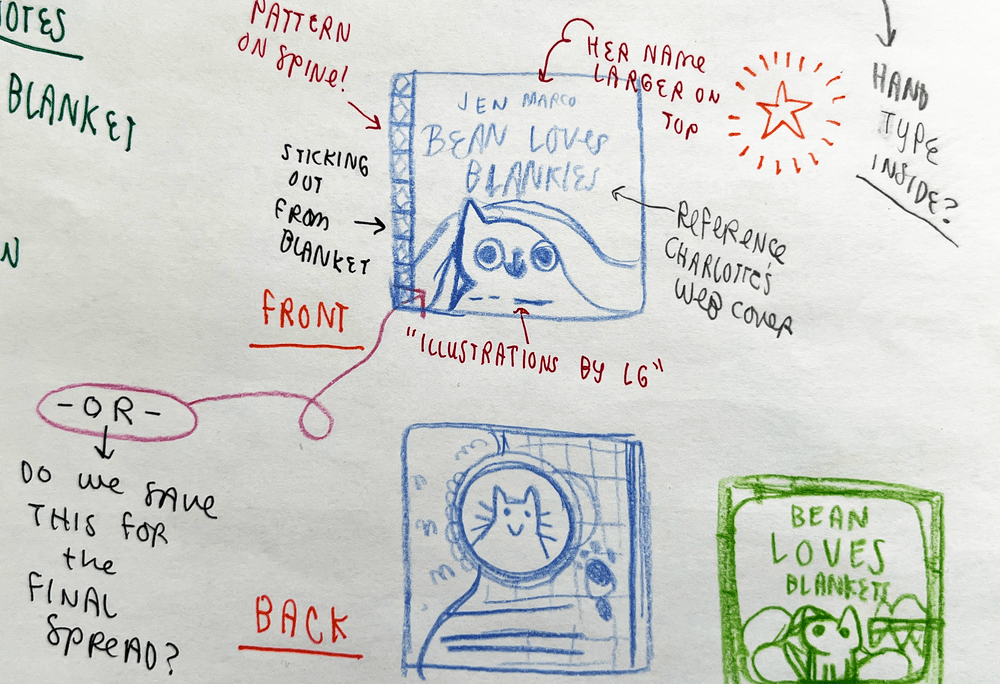 NOTES
BLANKET
N
PATTERN
ON SPINE!
HER NAME
LARGER ON
TOP
HAND
TYPE
INSIDE?
JEN MARCO
BEAN LOVES
BLANKIES
STICKING
OUT
FROM
BLANKET
REFERENCE
CHARLOTTE'S
WEB COVER
FRONT
"ILLUSTRATIONS BY LG"
-OR-
DO WE SAVE
THIS FOR
the
FINAL
SPREAD?
BACK
BEAN
LOVES
BLANKETS